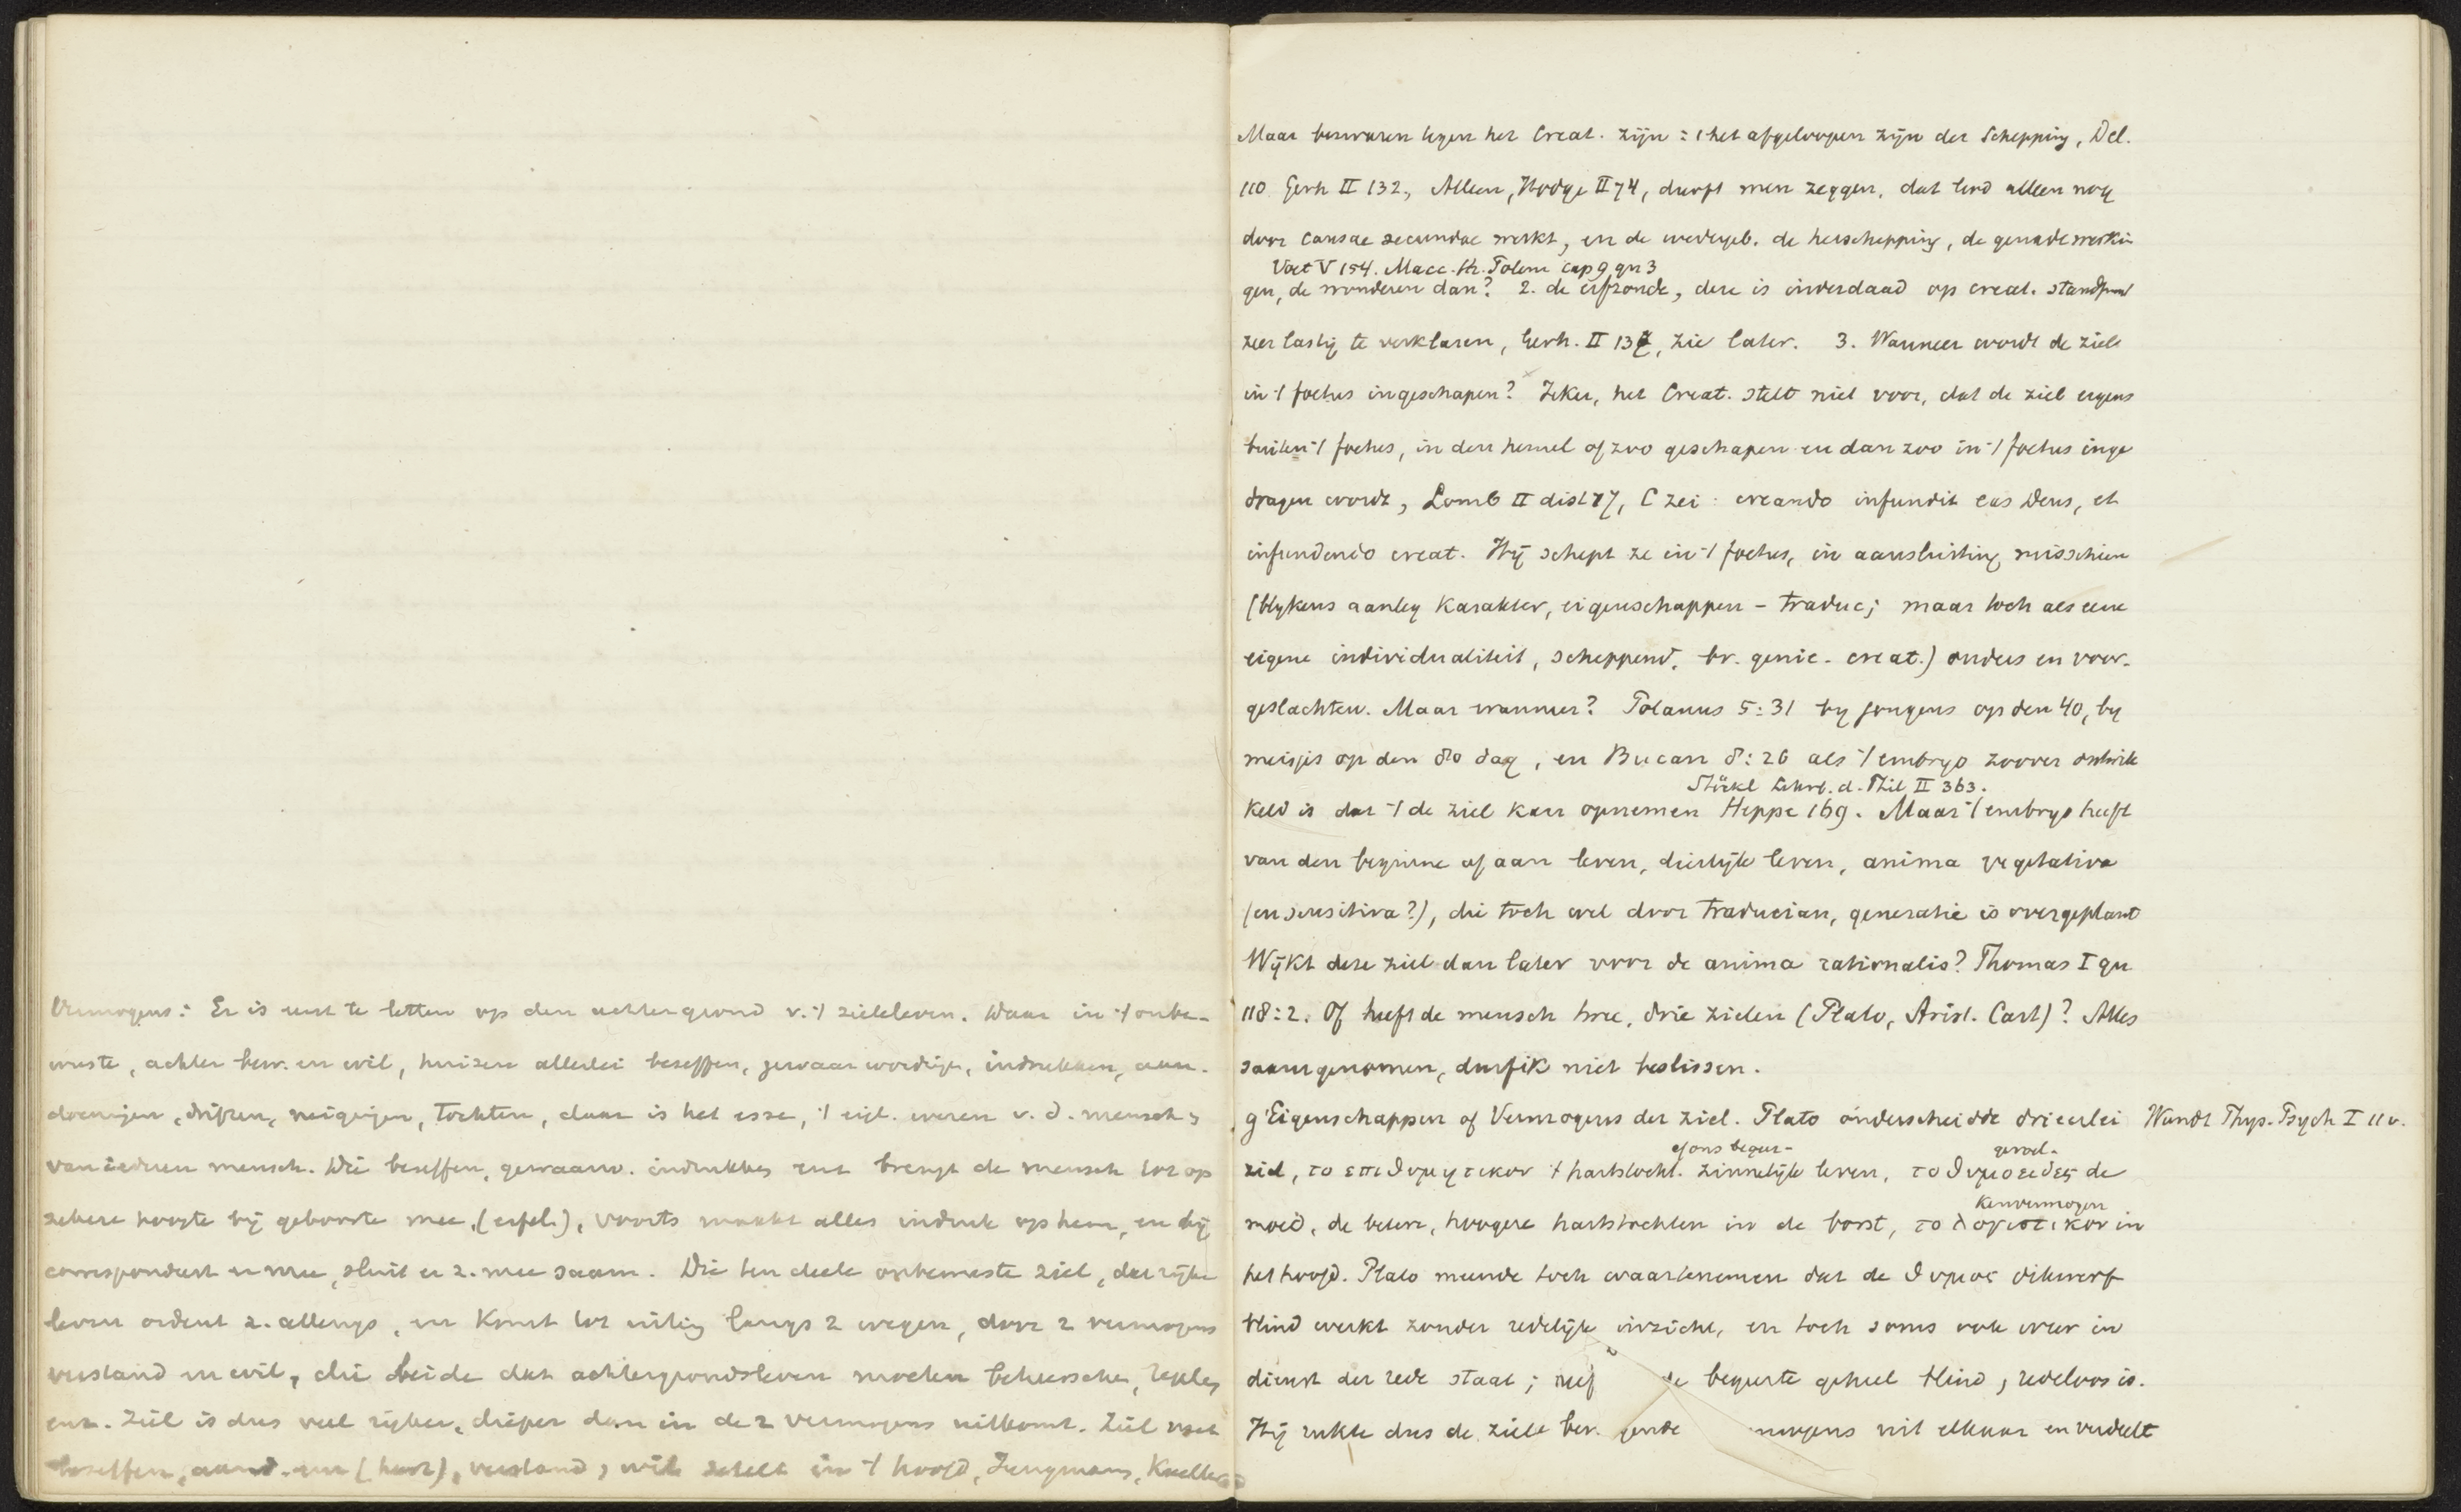 Vermogens: Er is eerst te letten op den achtergrond v. 't zieleleven. Daar in 't onbe-
wuste, achter bew. en wil, huizen allerlei beseffen, gewaarwordingn, indrukken, aan-
doeningen, driften, neigingen, tochten, daar is het esse, 't eigl. wezen v. d. mensch,
van iederen mensch. Die beseffen, gewaarw. indrukken enz brengt de mensch tot op
zekere hoogte bij geboorte mee, (erfel.), voorts maakt alles indruk op hem, en hij
correspondeert er mee, sluit er z. mee saam. Die ten deele onbewuste ziel, dat rijke
leven ordent z. allengs, en komt tot uiting langs 2 wegen, door 2 vermogens
verstand en wil, die beide dat achtergrondsleven moeten beheerschen, regelen
enz. Ziel is dus veel rijker, dieper dan in de 2 vermogens uitkomt. Ziel met
beseffen, aand. enz (hart), verstand, wil zetelt in 't hoofd, Jungmann,
Maar bezwaren tegen het Creat. zijn: 1 het afgeloopen zijn der Schepping, Del.
110 Gerh II 132, Alleen, Hodge II 74, durft men zeggen, dat God alleen nog
door causae secundae werkt, en de wedergeb. de herschepping, de genadewerkin
Voet V 154. Macc. th. Polem cap 9 qu 3
gen, de wonderen dan? 2. de erfzonde, deze is inderdaad op creat. standpunt
zeer lastig te verklaren, Gerh. II 137, zie later. 3. Wanneer wordt de ziel
in 't foetus ingeschapen? Zeker, het Creat. stelt niet voor, dat de ziel ergens
buiten 't foetus, in den hemel of zoo geschapen en dan zoo in 't foetus inge
dragen wordt, Lomb II dist 17, C zei: creando infundit eas Deus, et
infundendo creat. Hij schept ze in 't foetus, in aansluiting misschien
(blykens aanleg karakter, eigenschappen - traduc; maar toch als eene
eigene individualiteit, scheppend, bv. genie - creat.) ouders en voor-
geslachten. Maar wanneer? Polanus 5:31 by jongens op den 40, by
meisjes op den 80 dag, en Bucan 8:26 als 't embryo zoover ontwik
Stöckl Lehrb. d. Phil II 363.
keld is dat 't de ziel kan opnemen Heppe 169. Maar 't embryo heeft
van den beginne af aan leven, dierlijk leven, anima vegetativa
(en sensitiva?), die toch wel door traducian, generatie is overgeplant
Wijkt deze ziel dan later voor de anima rationalis? Thomas I qu
118:2. Of heeft de mensch twee, drie zielen (Plato, Arist. Cart)? Alles
saamgenomen, durf ik niet beslissen.
g' Eigenschappen of Vermogens der ziel. Plato onderscheidde drieerlei Wundt Phys. Psych I 11 v.
of ons begeer- gevoel-
ziel, το επιθυμητικον 't hartstocht. zinnelijk leven, το θυμοειδες de
Kenvermogen
moed, de betere, hoogere hartstochten in de borst, το λογιστικον in
het hoofd. Plato meende toch waartenemen dat de θυμος dikwerf
blind werkt zonder redelijk inzicht, en toch soms ook weer in
dienst der rede staat; de begeerte geheel blind, redeloos is.
Hij rukte dus de ziele uit elkaar en verdeelt